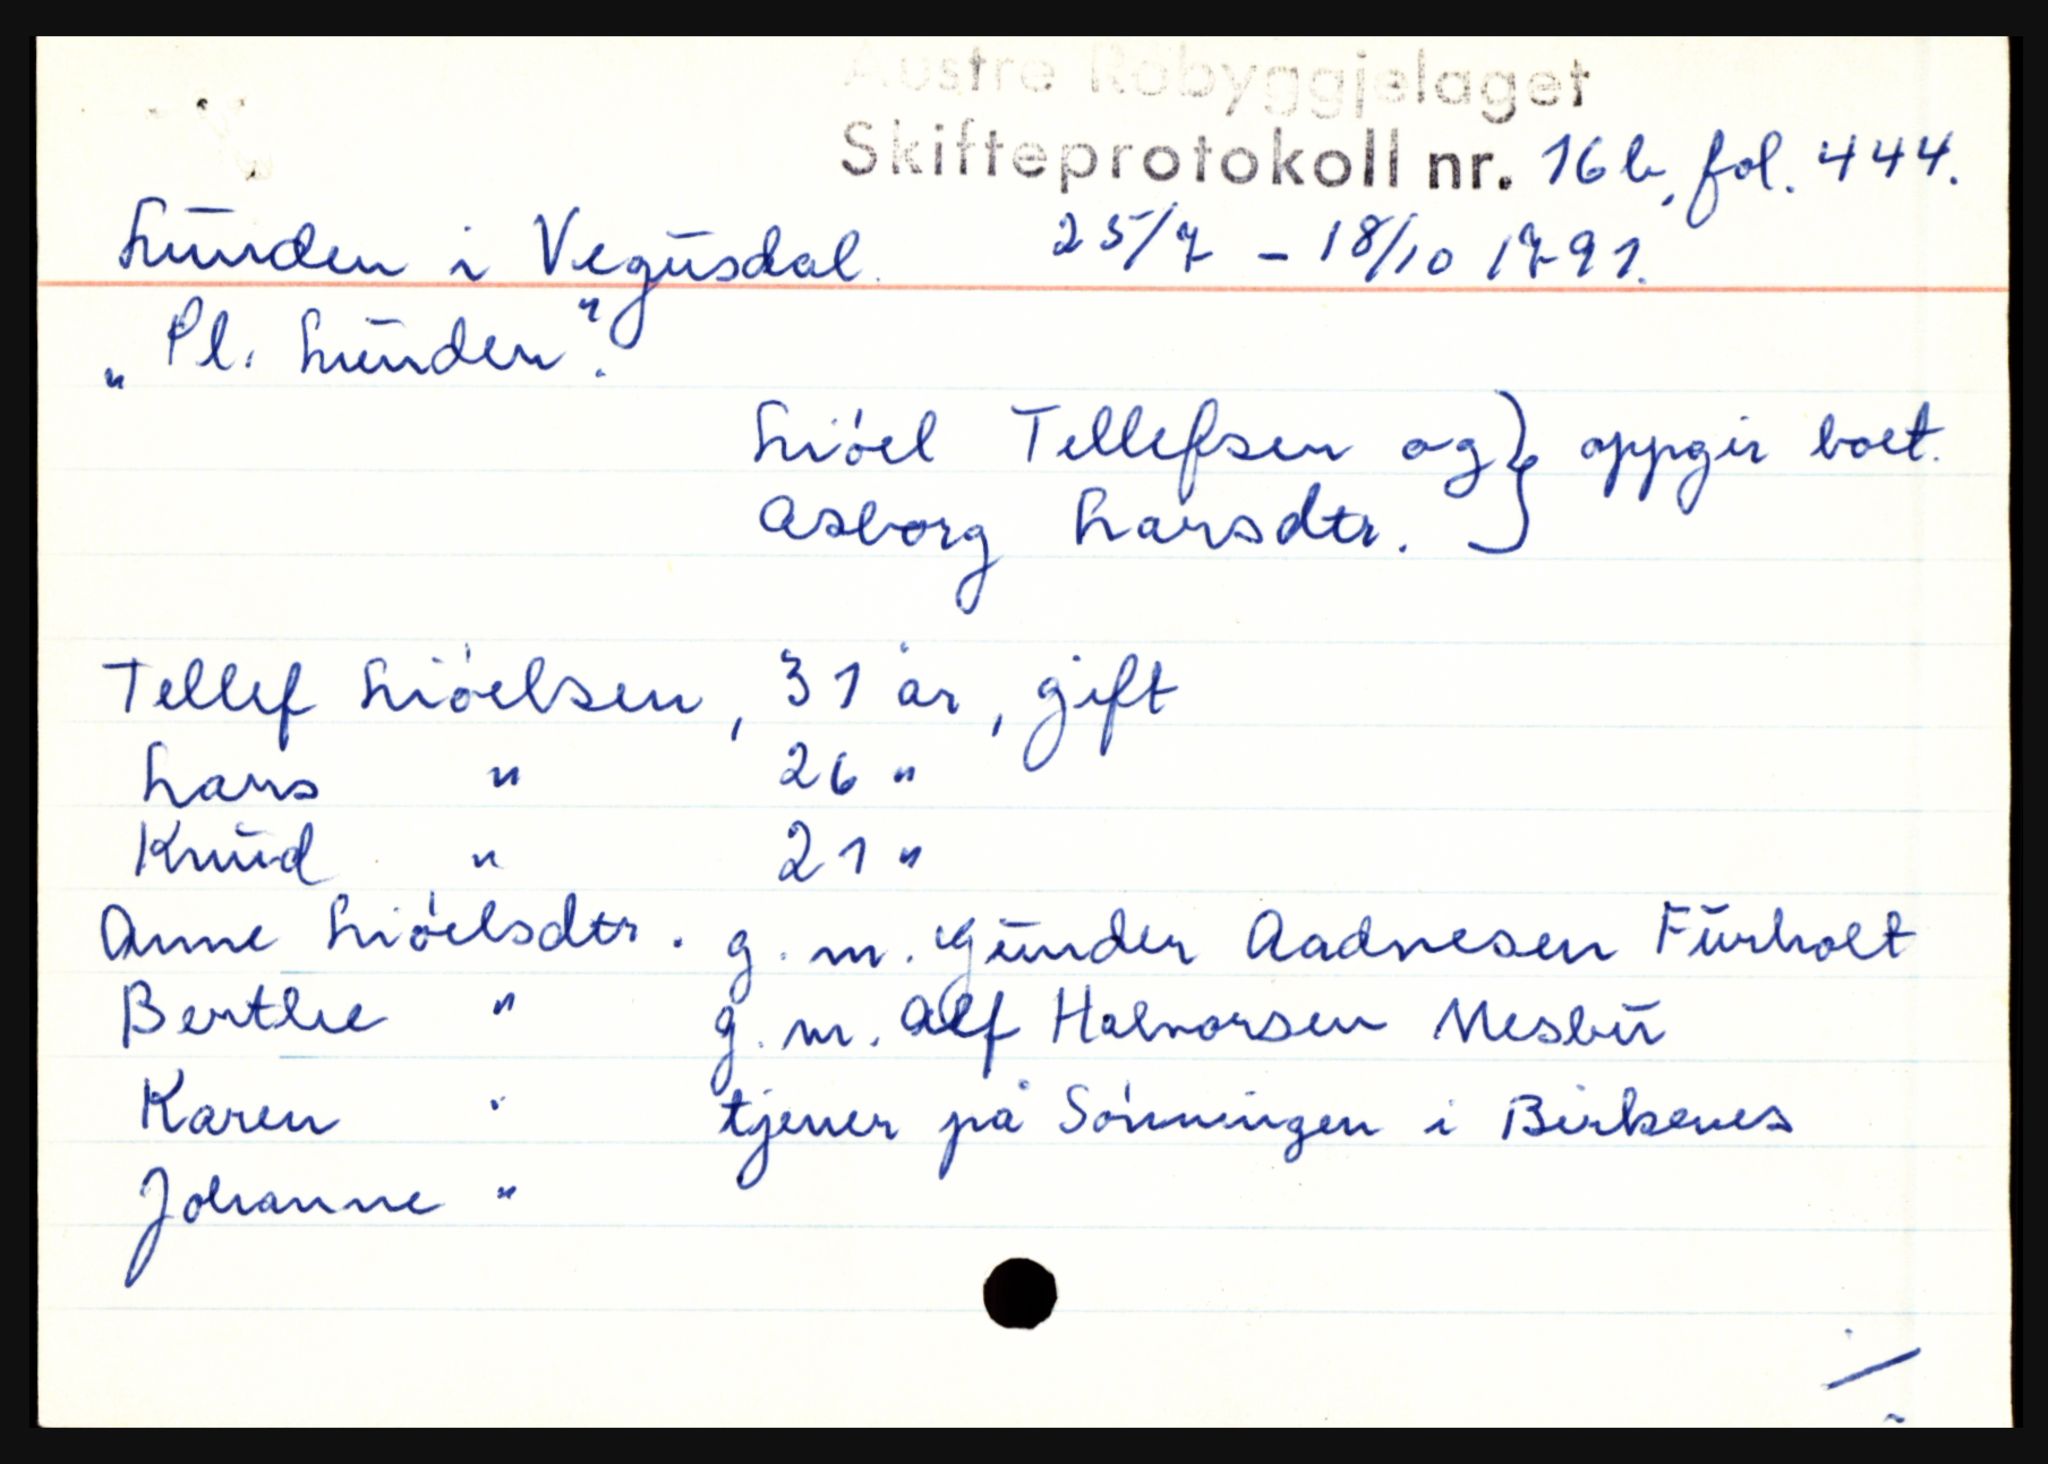 Austre Råbyggjelaget
Skifteprotokoll nr. 16 b, fol. 444.
Lunden i Vegusdal. 25/7 - 18/10 1791.
"Pl. Lunden".
Liöel Tellefsen og } oppgir boet.
Asborg Larsdtr.
Tellef Liöelsen, 31 år, gift
Lars " 26 "
Knud " 21 "
Anne Liöelsdtr. g. m. Gunder Aadnesen Furholt
Berthe " g. m. Alf Halvorsen Mesbu
Karen " tjener på Sönningen i Birkenes
Johanne "